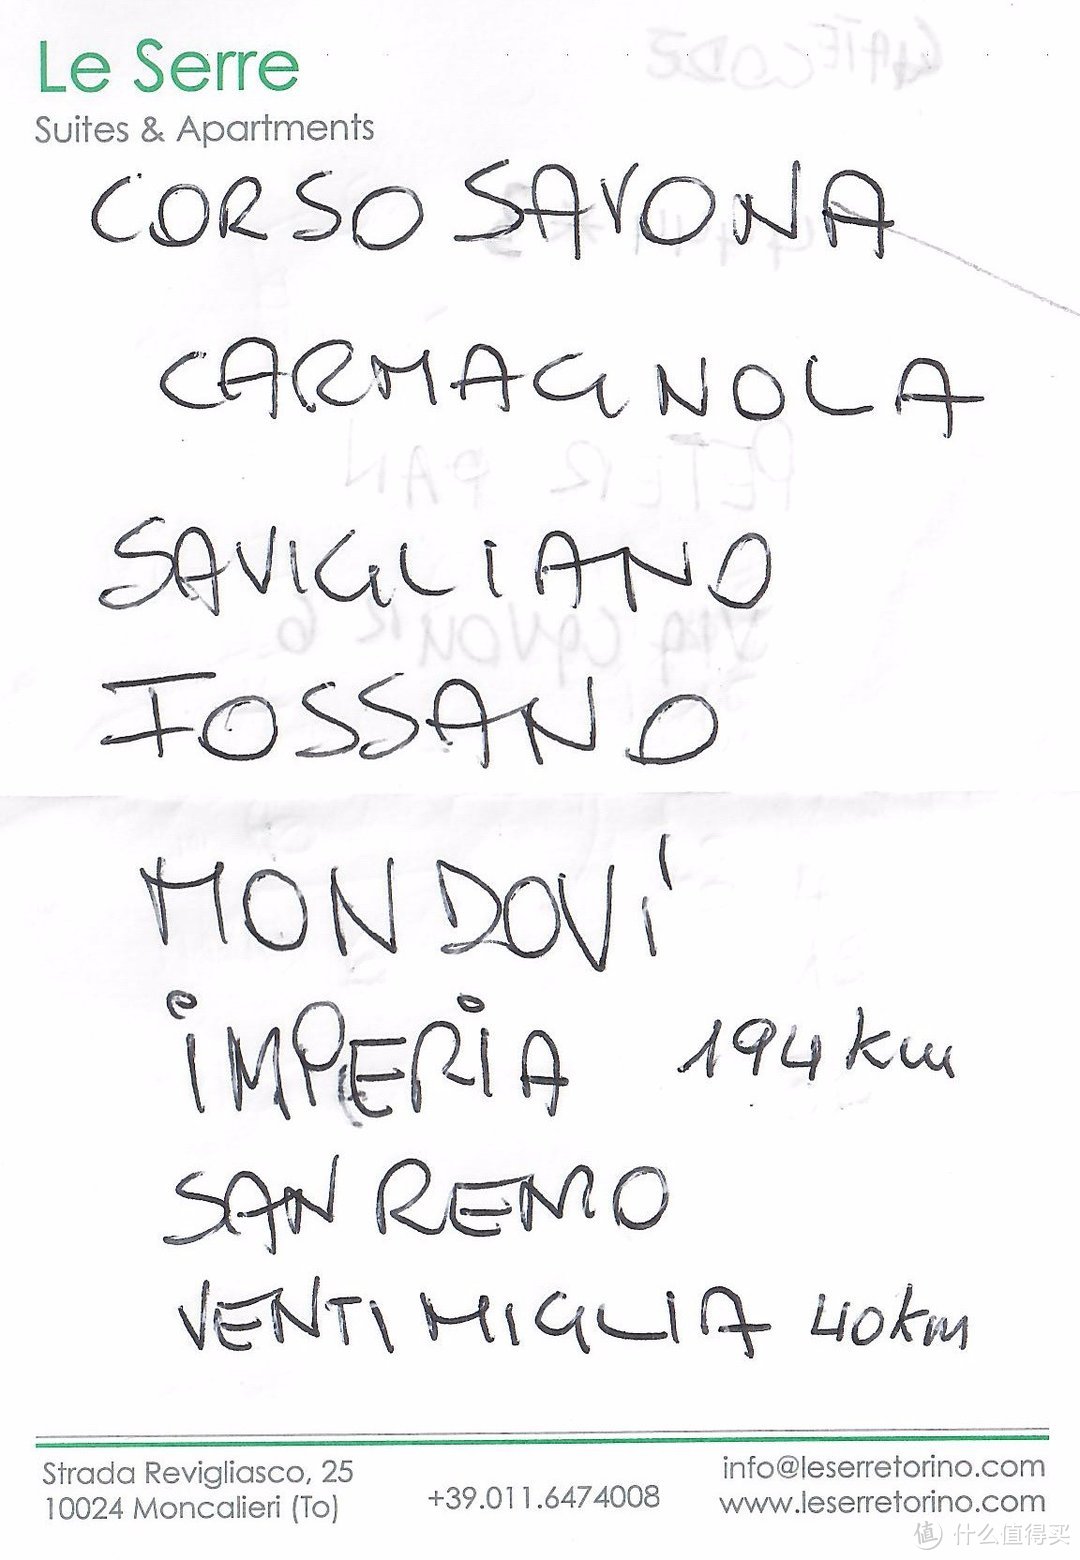 Le Serre
Suites & Apartments
CORSO SAVONA
CARMAGNOLA
SAVIGLIANO
FOSSANO
MONDOVI'
iMPERiA 194 km
SAN REMO
VENTIMIGLIA 40 km
Strada Revigliasco, 25
10024 Moncalieri (To)
+39.011.6474008
info@leserretorino.com
www.leserretorino.com
值 什么值得买